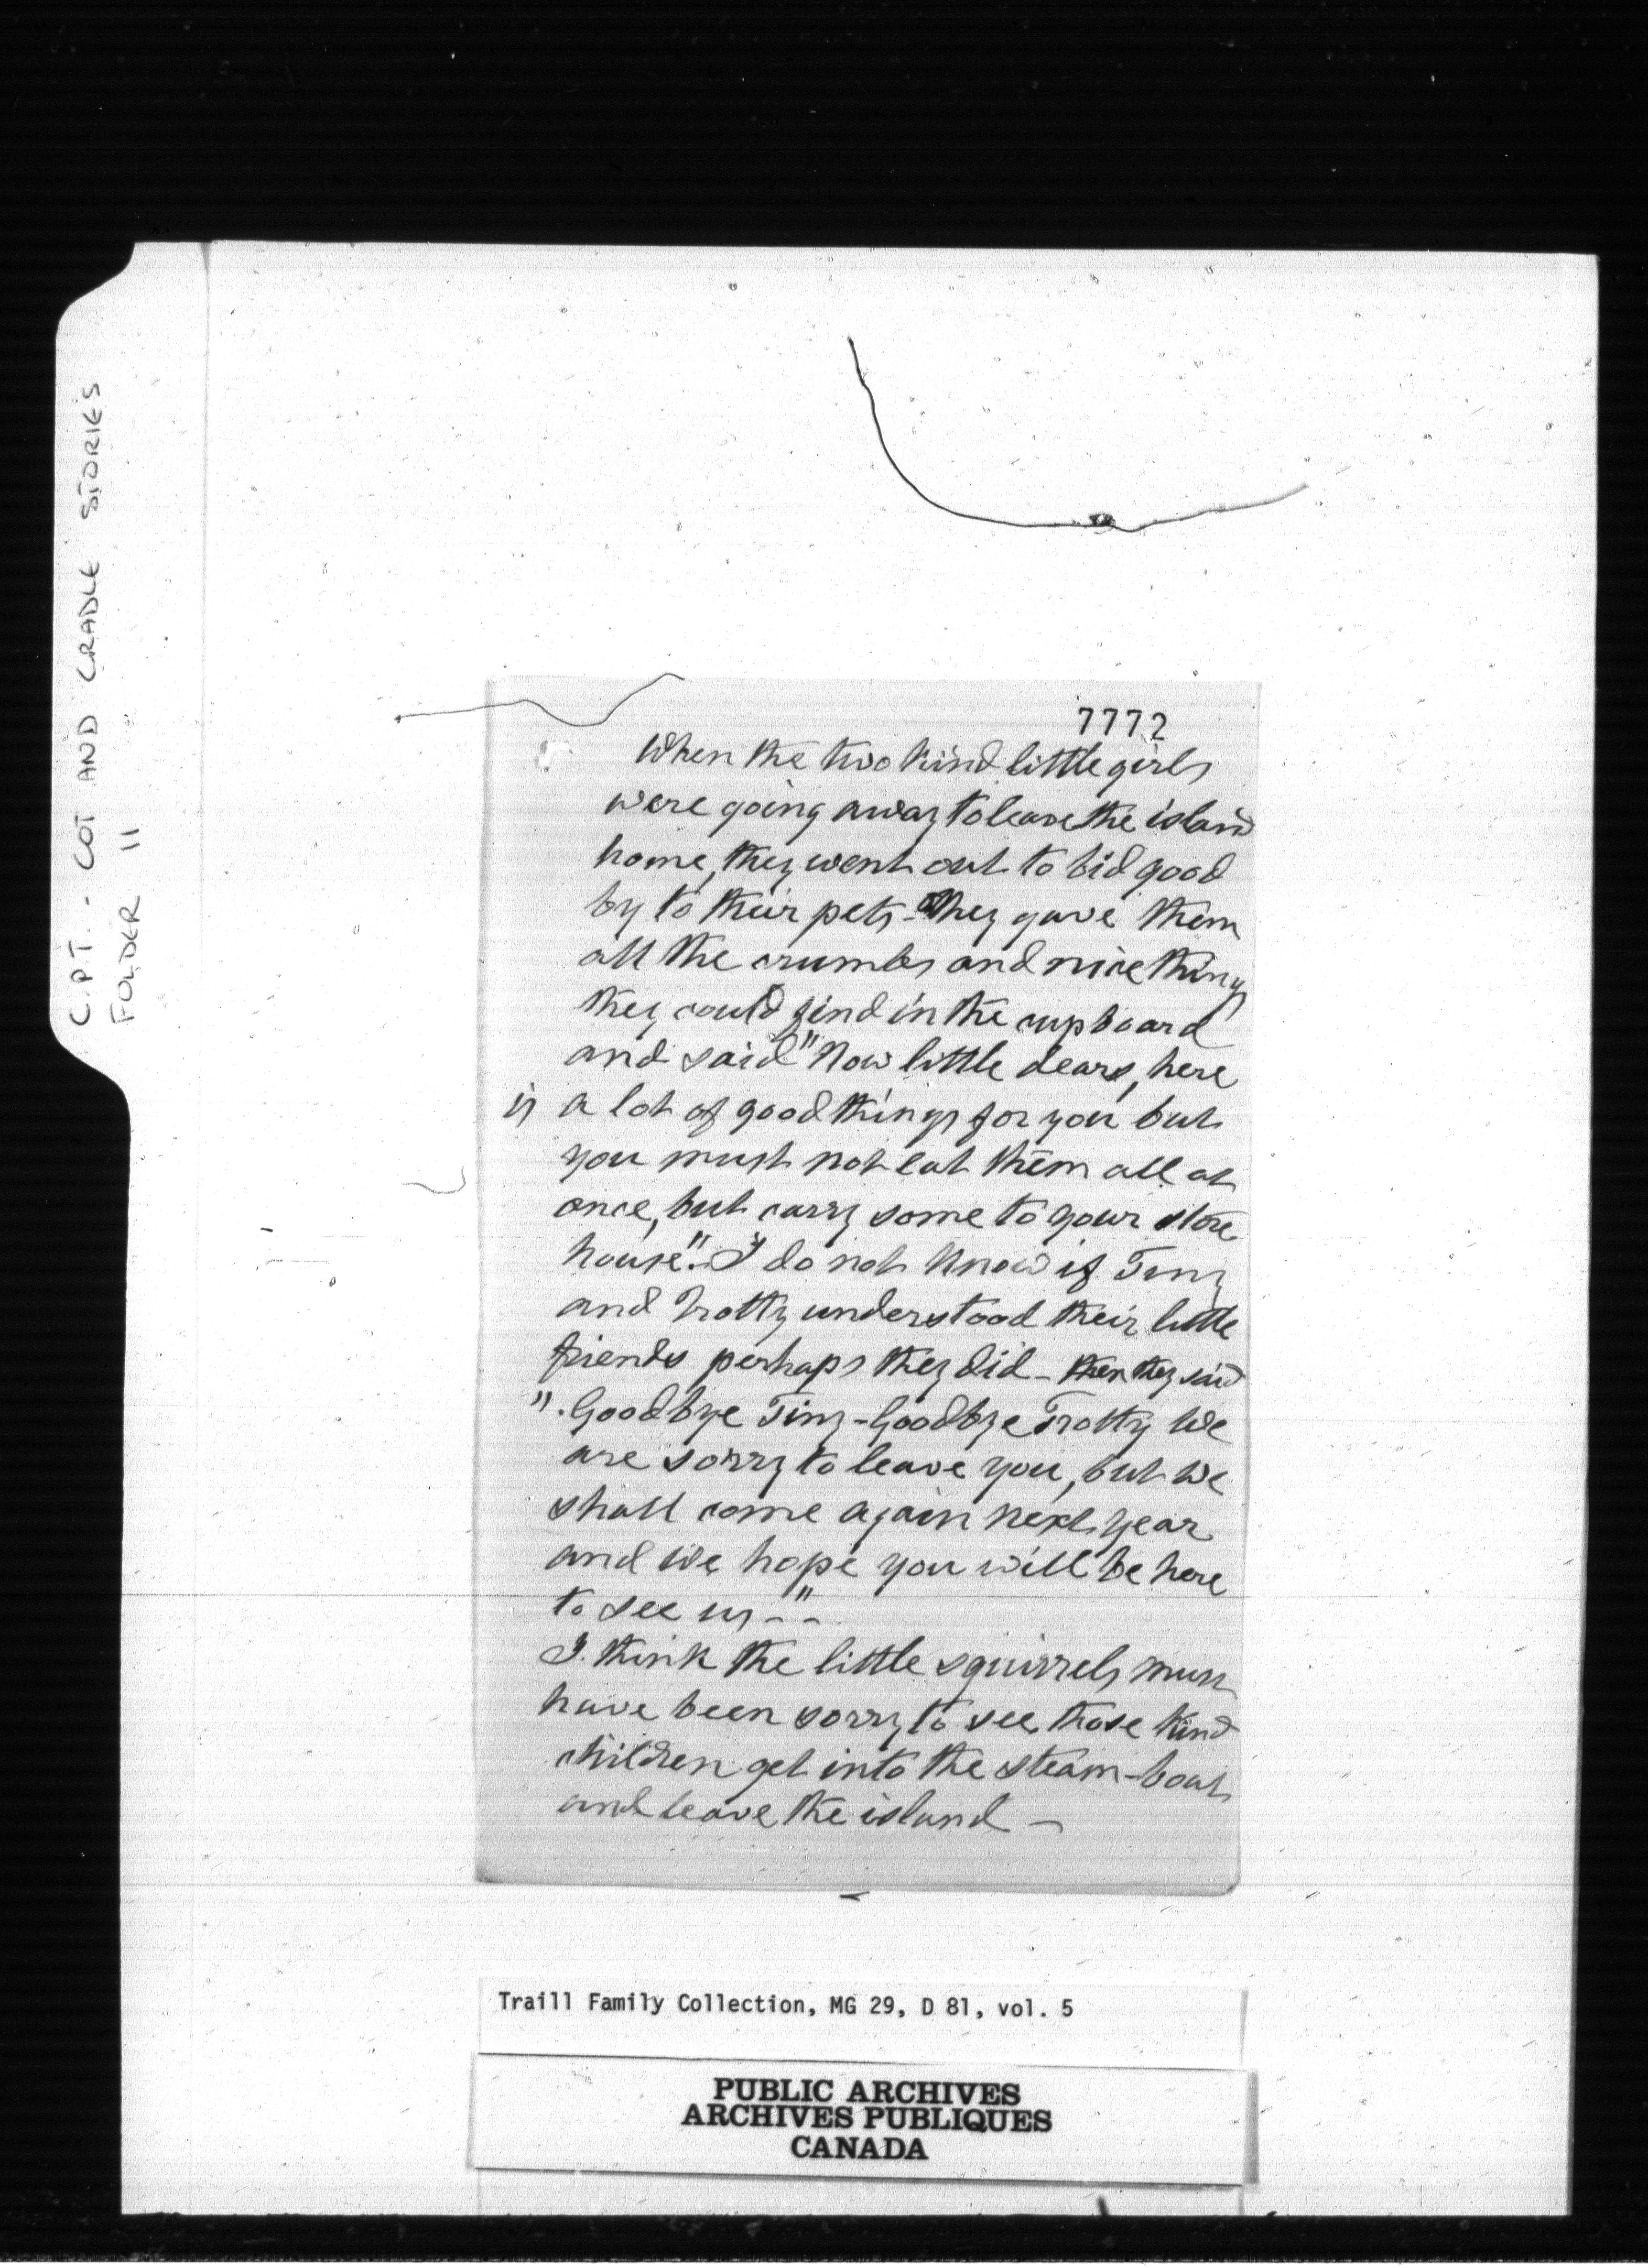 C.P.T. - COT AND CRADLE STORIES
FOLDER 11
7772
When the two kind little girls
were going away to leave the island
home, they went out to bid good
by to their pets - They gave them
all the crumbs and nice things
they could find in the cupboard
and said "Now little dears, here
is a lot of good things for you but
you must not eat them all at
once, but carry some to your store
house". I do not know if Tiny
and Trotty understood their little
friends perhaps they did - then they said
". Goodbye Tiny - Goodbye Trotty We
are sorry to leave you, but we
shall come again next year
and we hope you will be here
to see us - " -
I think the little squirrels must
have been sorry to see those kind
children get into the steam-boat
and leave the island -
Traill Family Collection, MG 29, D 81, vol. 5
PUBLIC ARCHIVES
ARCHIVES PUBLIQUES
CANADA